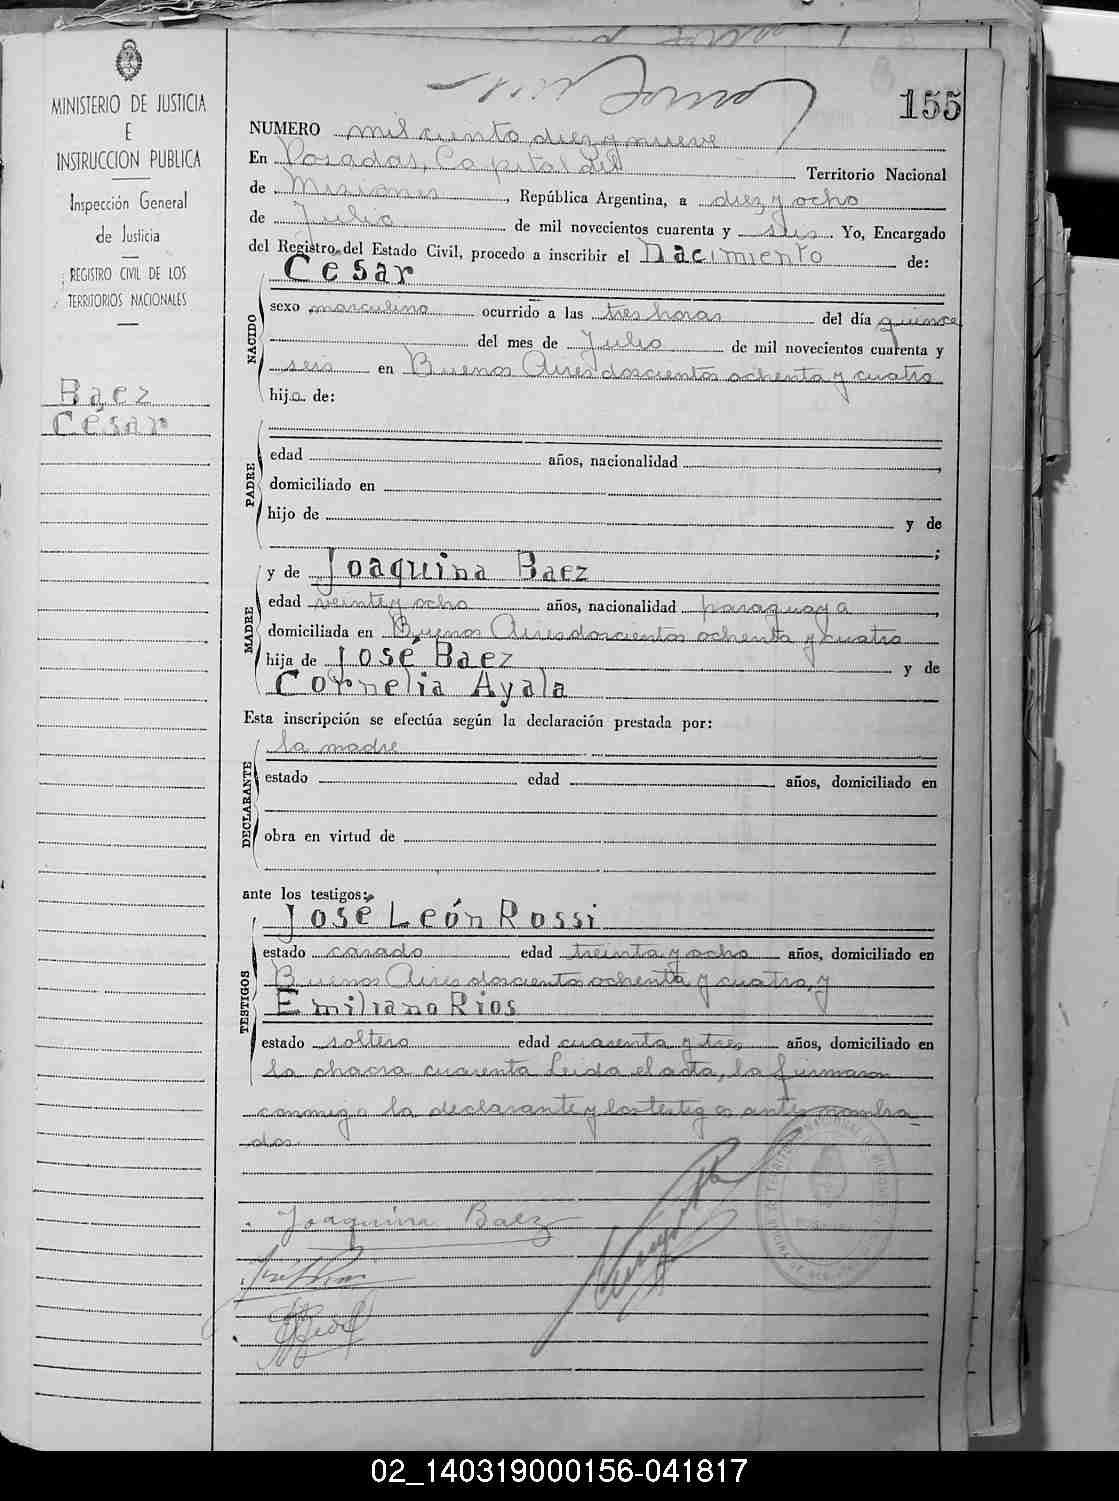 155
MINISTERIO DE JUSTICIA
E
INSTRUCCION PUBLICA
Inspección General
de Justicia
REGISTRO CIVIL DE LOS
TERRITORIOS NACIONALES
Baez
César
NUMERO mil ciento diez y nueve
En Posadas, Capital del Territorio Nacional
de Misiones, República Argentina, a diez y ocho
de Julio de mil novecientos cuarenta y seis. Yo, Encargado
del Registro del Estado Civil, procedo a inscribir el Nacimiento de:
César
NACIDO
sexo masculino ocurrido a las tres horas del día quince
del mes de Julio de mil novecientos cuarenta y
seis en Buenos Aires doscientos ochenta y cuatro
hijo de:
PADRE
edad años, nacionalidad ,
domiciliado en
hijo de y de
;
MADRE
y de Joaquina Baez
edad veinte y ocho años, nacionalidad paraguaya,
domiciliada en Buenos Aires doscientos ochenta y cuatro
hija de José Baez y de
Cornelia Ayala
Esta inscripción se efectúa según la declaración prestada por:
DECLARANTE
la madre
estado edad años, domiciliado en
obra en virtud de
ante los testigos:
TESTIGOS
José León Rossi
estado casado edad treinta y ocho años, domiciliado en
Buenos Aires doscientos ochenta y cuatro, y
Emiliano Rios
estado soltero edad cuarenta y tres años, domiciliado en
la chacra cuarenta Leida el acta, la firmaron
conmigo la declarante y los testigos antes nombra-
dos.
Joaquina Baez
02_140319000156-041817